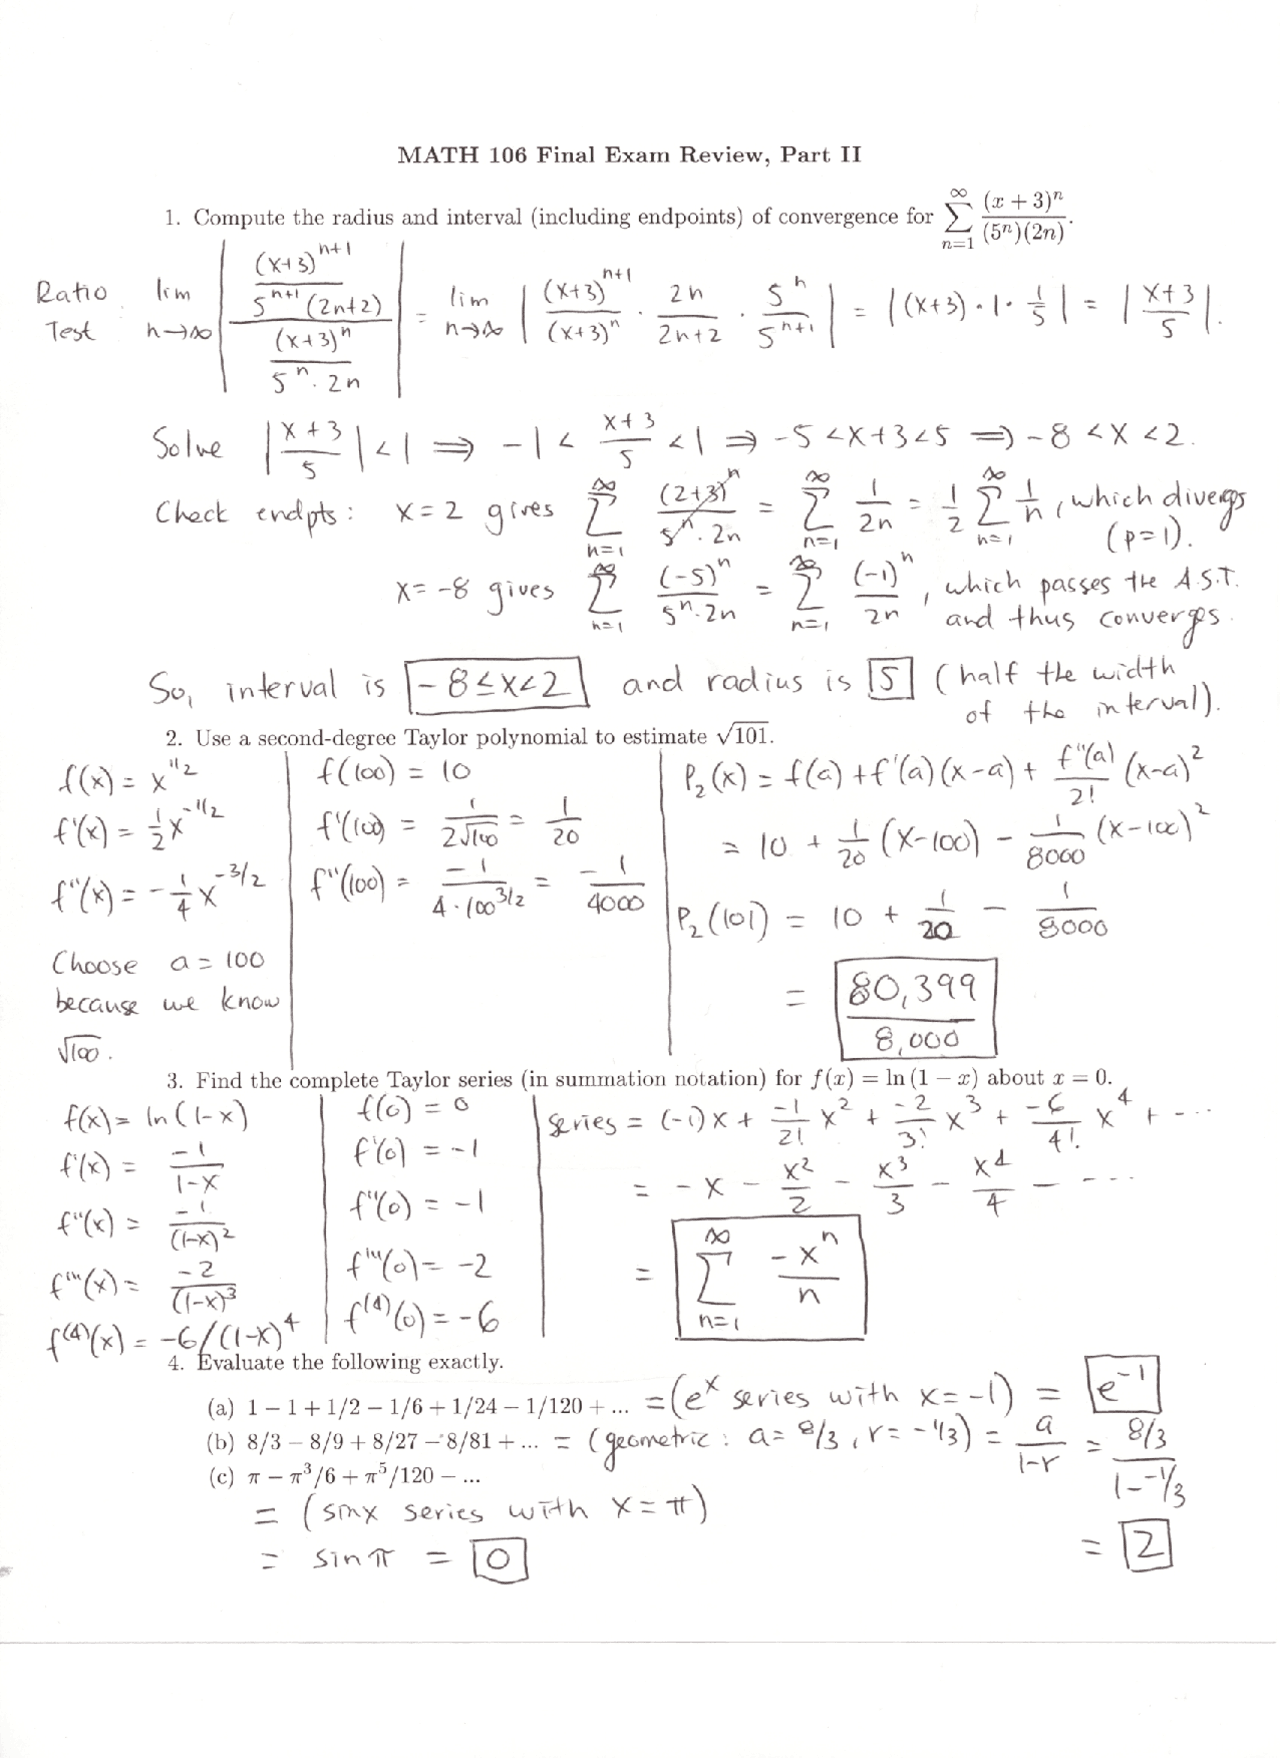 MATH 106 Final Exam Review, Part II
1. Compute the radius and interval (including endpoints) of convergence for ∑_{n=1}^{∞} (x + 3)^n / (5^n)(2n).
Ratio Test lim_{n→∞} | ((x+3)^{n+1} / 5^{n+1}(2n+2)) / ((x+3)^n / 5^n · 2n) | = lim_{n→∞} | (x+3)^{n+1}/(x+3)^n · 2n/2n+2 · 5^n/5^{n+1} | = |(x+3) · 1 · 1/5| = |x+3/5|.
Solve |x+3/5| < 1 ⇒ -1 < x+3/5 < 1 ⇒ -5 < x+3 < 5 ⇒ -8 < x < 2.
Check endpts: x = 2 gives ∑_{n=1}^{∞} (2+3)^n / 5^n · 2n = ∑_{n=1}^{∞} 1/2n = 1/2 ∑_{n=1}^{∞} 1/n, which diverges (p=1).
x = -8 gives ∑_{n=1}^{∞} (-5)^n / 5^n · 2n = ∑_{n=1}^{∞} (-1)^n / 2n, which passes the A.S.T. and thus converges.
So, interval is -8 ≤ x < 2 and radius is 5 (half the width of the interval).
2. Use a second-degree Taylor polynomial to estimate √101.
f(x) = x^{1/2}
f'(x) = 1/2 x^{-1/2}
f''(x) = -1/4 x^{-3/2}
Choose a = 100
because we know
√100.
f(100) = 10
f'(100) = 1/2√100 = 1/20
f''(100) = -1/4·100^{3/2} = -1/4000
P_2(x) = f(a) + f'(a)(x-a) + f''(a)/2! (x-a)^2
= 10 + 1/20 (x-100) - 1/8000 (x-100)^2
P_2(101) = 10 + 1/20 - 1/8000
= 80,399/8,000
3. Find the complete Taylor series (in summation notation) for f(x) = ln (1 − x) about x = 0.
f(x) = ln(1-x)
f'(x) = -1/1-x
f''(x) = -1/(1-x)^2
f'''(x) = -2/(1-x)^3
f^{(4)}(x) = -6/(1-x)^4
f(0) = 0
f'(0) = -1
f''(0) = -1
f'''(0) = -2
f^{(4)}(0) = -6
Series = (-1)x + -1/2! x^2 + -2/3! x^3 + -6/4! x^4 + ...
= -x - x^2/2 - x^3/3 - x^4/4 - ...
= ∑_{n=1}^{∞} -x^n/n
4. Evaluate the following exactly.
(a) 1 − 1 + 1/2 − 1/6 + 1/24 − 1/120 + ... = (e^x series with x = -1) = e^{-1}
(b) 8/3 − 8/9 + 8/27 − 8/81 + ... = (geometric: a = 8/3, r = -1/3) = a/1-r = 8/3 / 1--1/3
= 2
(c) π − π^3/6 + π^5/120 − ...
= (sin x series with x = π)
= sin π = 0